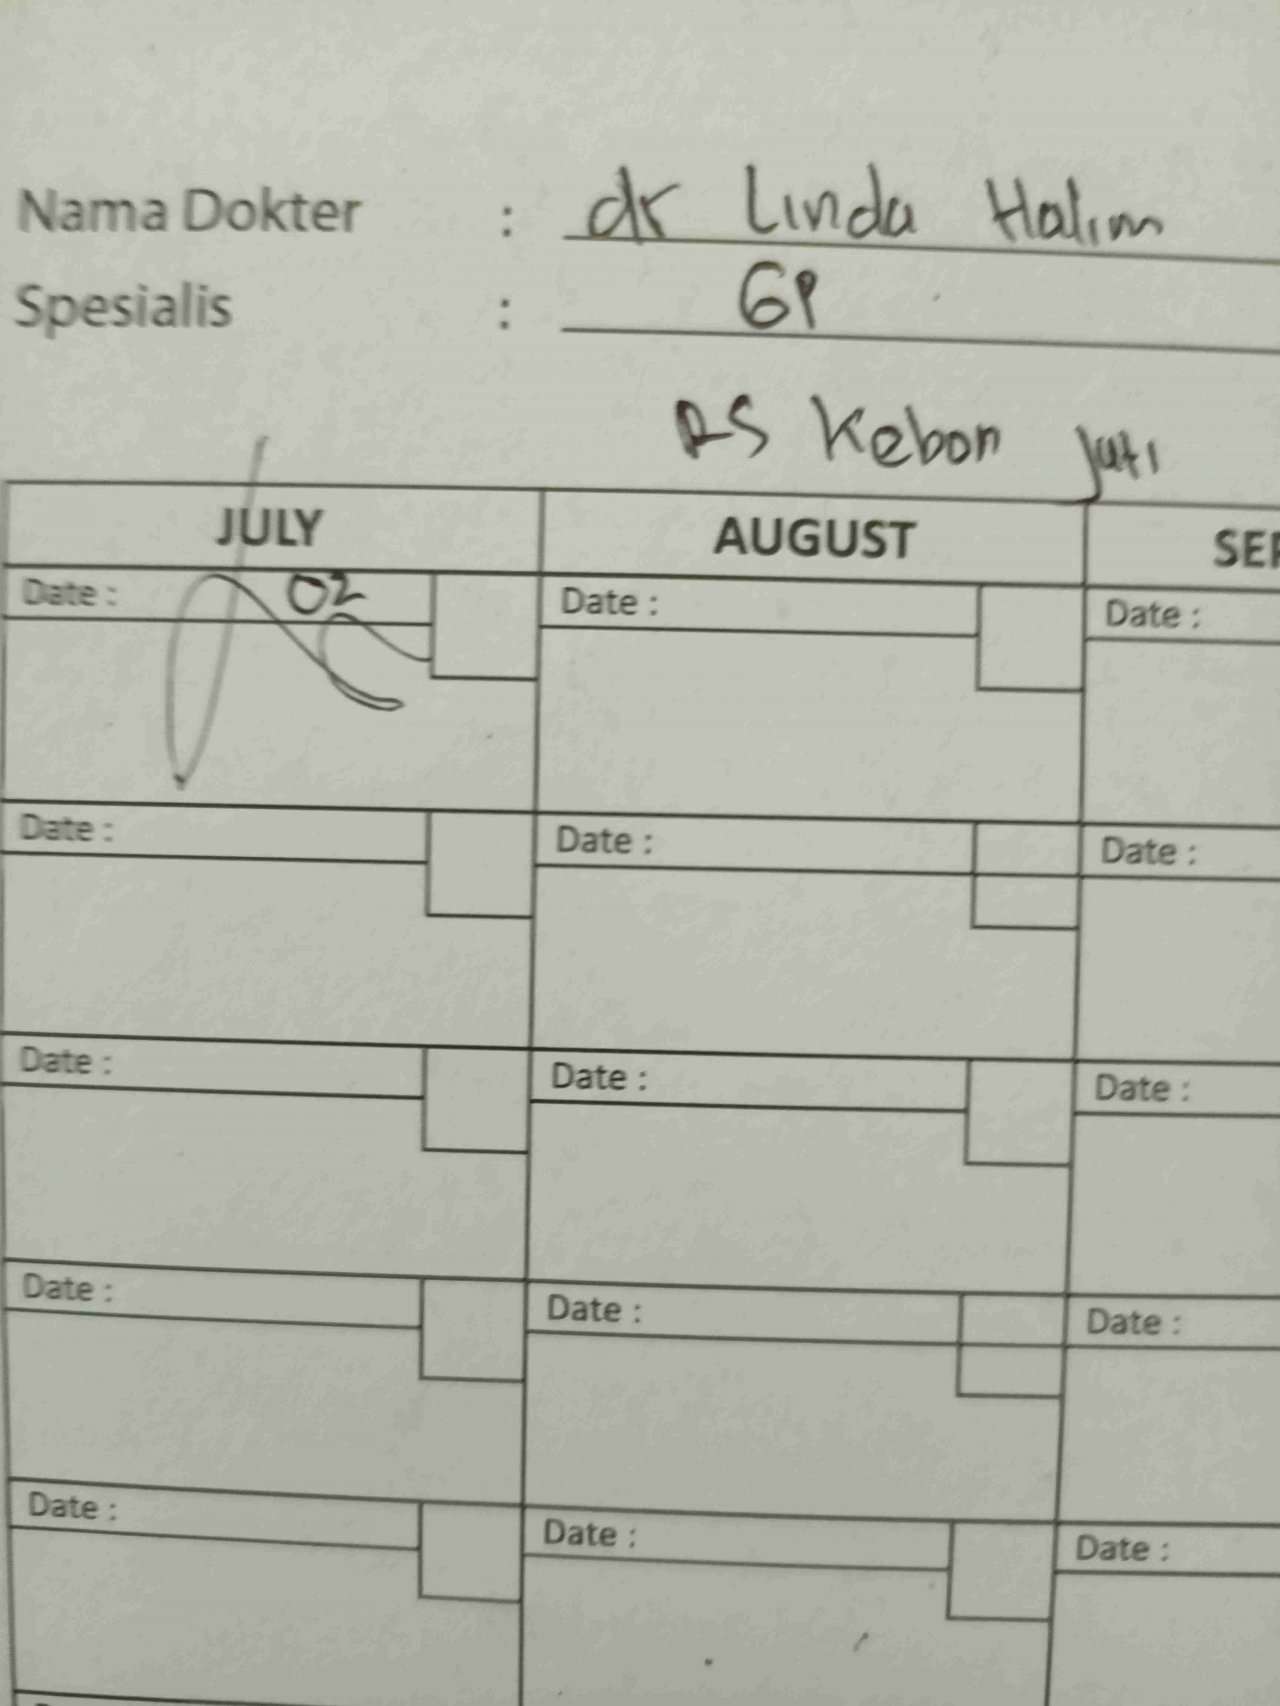 Nama Dokter : dr Linda Halim
Spesialis : GP
RS Kebon Jati
JULY AUGUST SEP
Date : 02 Date : Date :
Date : Date : Date :
Date : Date : Date :
Date : Date : Date :
Date : Date : Date :